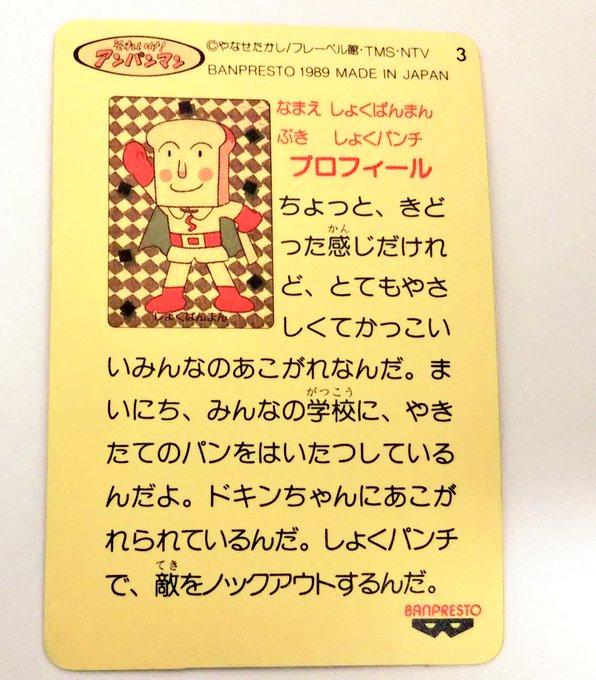 それいけ!
アンパンマン
©やなせたかし/フレーベル館・TMS・NTV
BANPRESTO 1989 MADE IN JAPAN
3
なまえ しょくぱんまん
ぶき しょくパンチ
プロフィール
しょくぱんまん
ちょっと、きど
った感じだけれ
かん
ど、とてもやさ
しくてかっこい
いみんなのあこがれなんだ。ま
がっこう
いにち、みんなの学校に、やき
たてのパンをはいたつしている
んだよ。ドキンちゃんにあこが
れられているんだ。しょくパンチ
てき
で、敵をノックアウトするんだ。
BANPRESTO